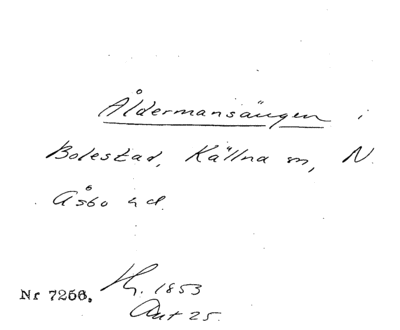 Åldermansängen i
Bolestad, Källna sn, N.
Åsbo hd.
Nr 7256. Hg. 1853
Akt 25.